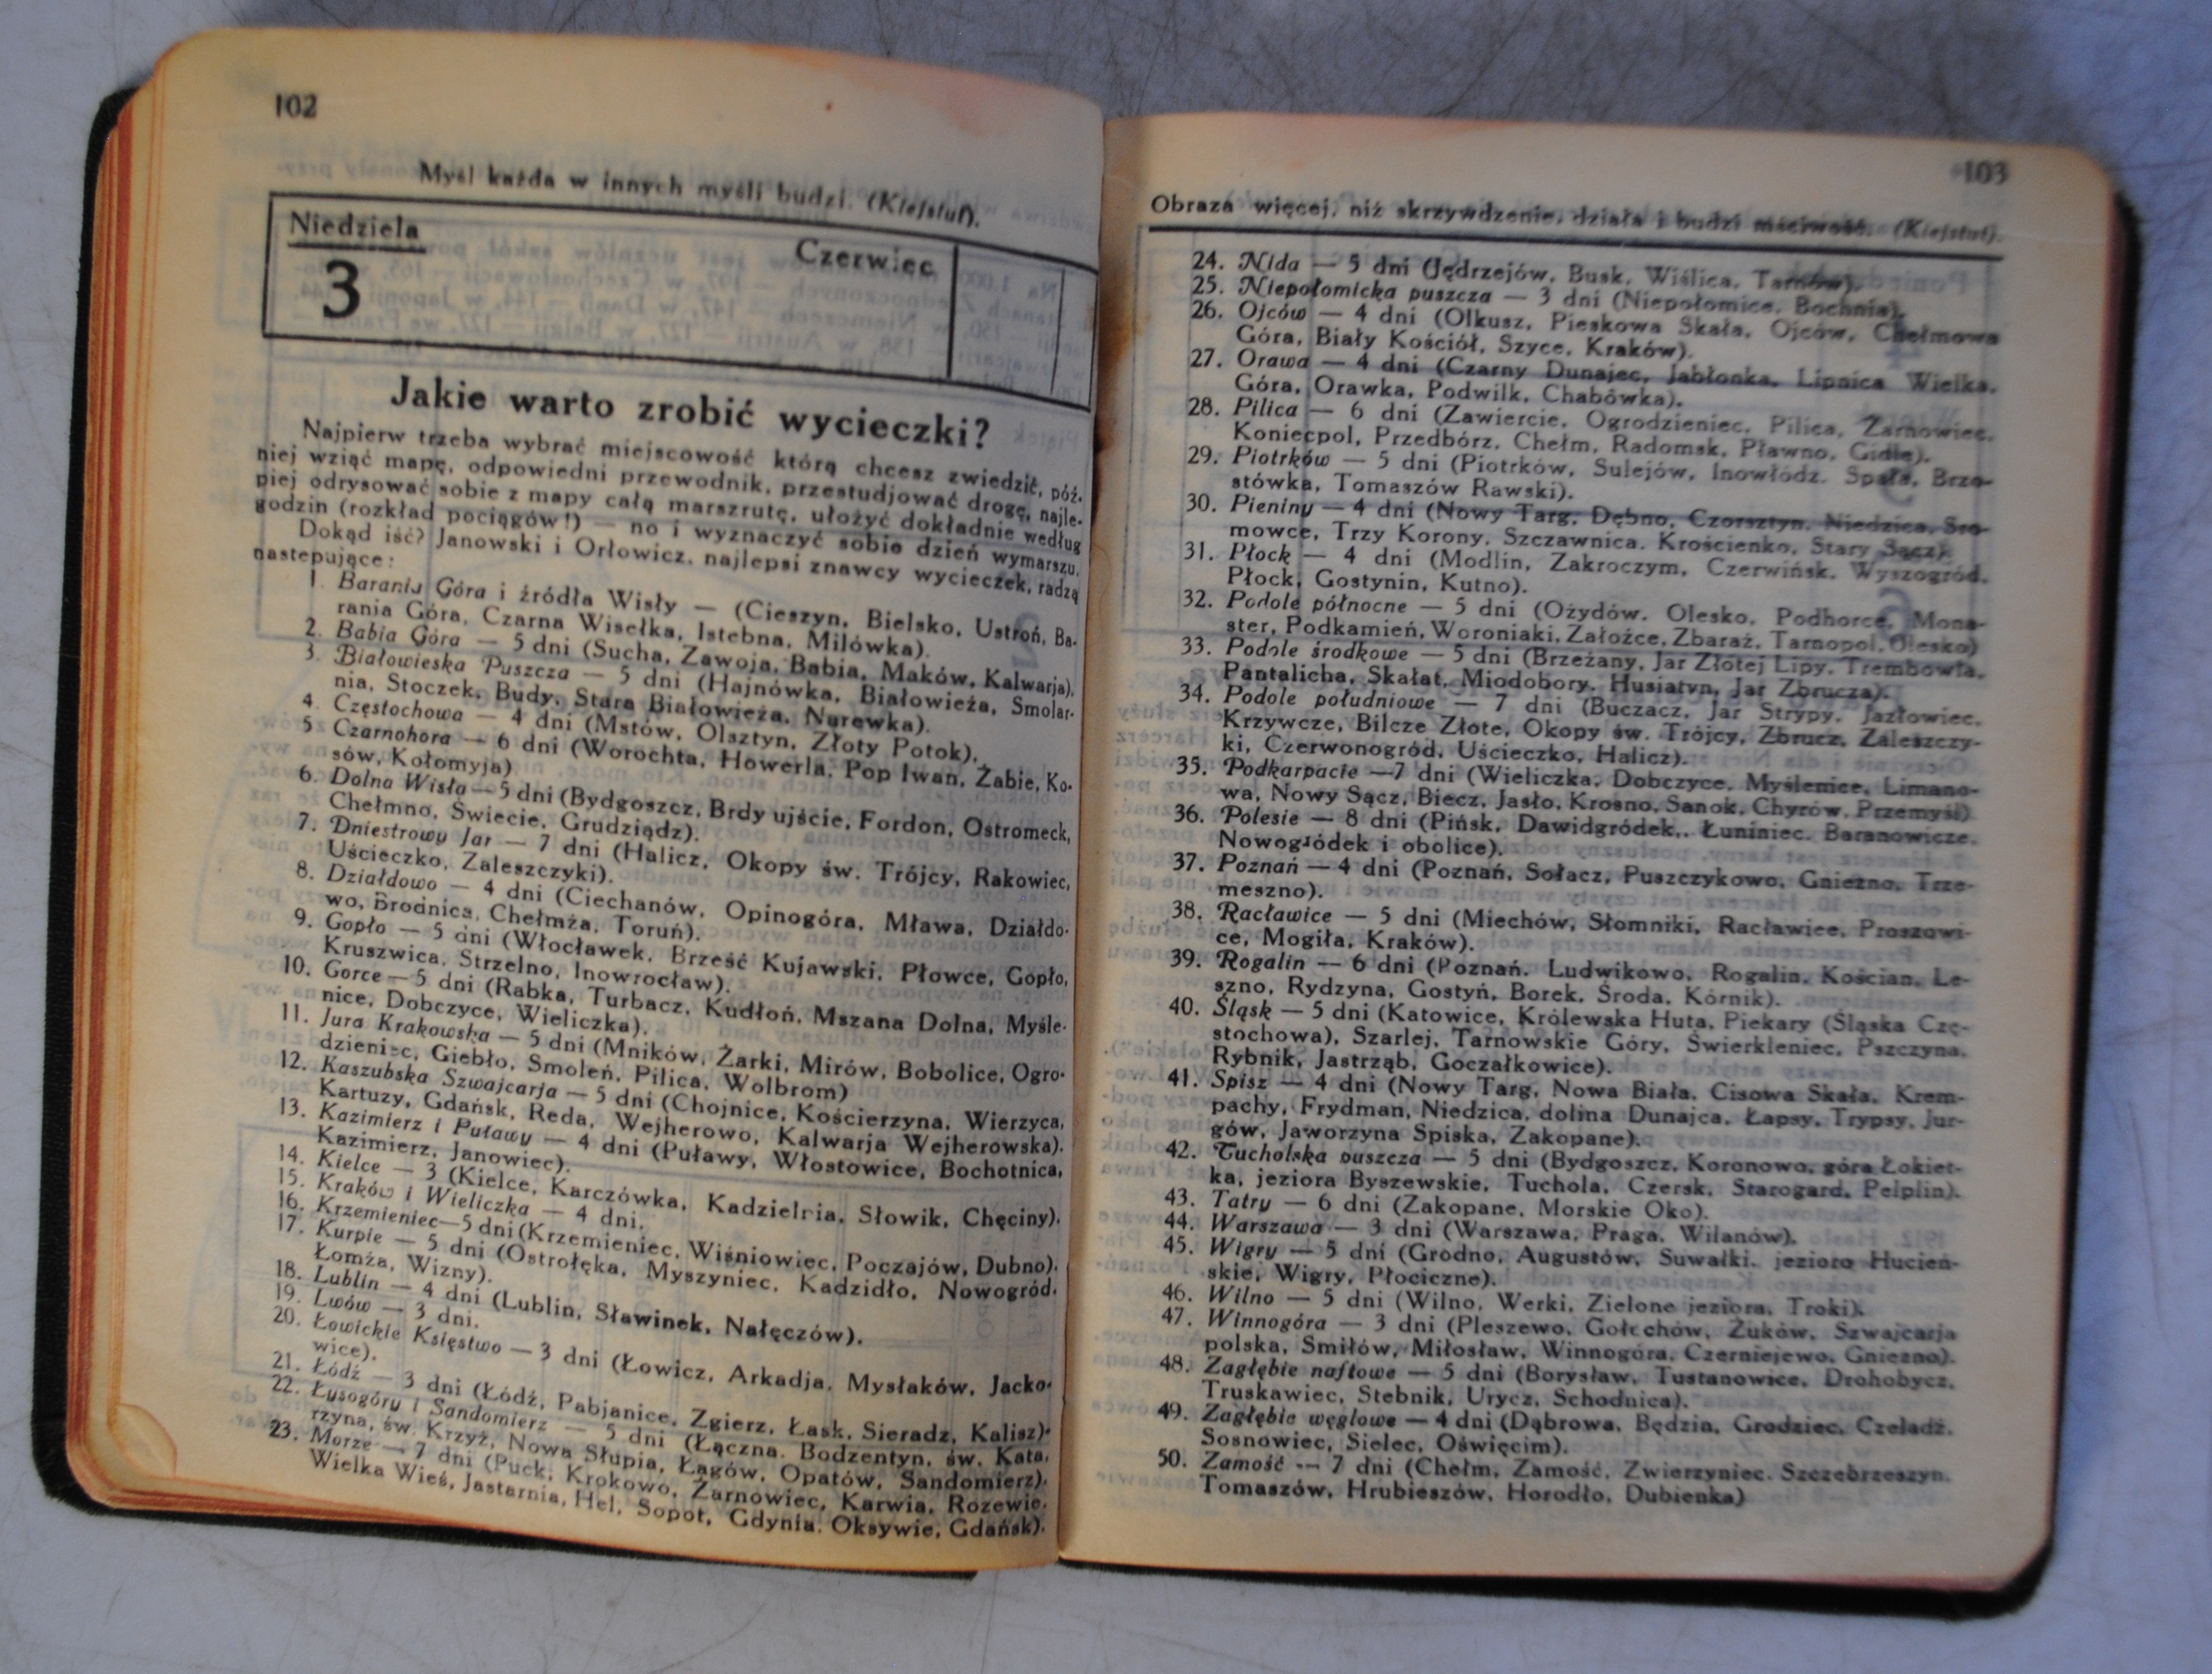 102
Myśl każda w innych myśli budzi. (Kiejstut).
Niedziela
3
Czerwiec
Jakie warto zrobić wycieczki?
Najpierw trzeba wybrać miejscowość którą chcesz zwiedzić, póź-
niej wziąć mapę, odpowiedni przewodnik, przestudjować drogę, najle-
piej odrysować sobie z mapy całą marszrutę, ułożyć dokładnie według
godzin (rozkład pociągów!) — no i wyznaczyć sobie dzień wymarszu.
Dokąd iść? Janowski i Orłowicz, najlepsi znawcy wycieczek, radzą
nastepujące:
1. Barania Góra i źródła Wisły — (Cieszyn, Bielsko, Ustroń, Ba-
rania Góra, Czarna Wisełka, Istebna, Milówka).
2. Babia Góra — 5 dni (Sucha, Zawoja, Babia, Maków, Kalwarja).
3. Białowieska Puszcza — 5 dni (Hajnówka, Białowieża, Smolar-
nia, Stoczek, Budy, Stara Białowieża, Narewka).
4. Częstochowa — 4 dni (Mstów, Olsztyn, Złoty Potok).
5 Czarnohora — 6 dni (Worochta, Howerla, Pop Iwan, Żabie, Ko-
sów, Kołomyja)
6. Dolna Wisła — 5 dni (Bydgoszcz, Brdy ujście, Fordon, Ostromeck,
Chełmno, Świecie, Grudziądz).
7. Dniestrowy Jar — 7 dni (Halicz, Okopy św. Trójcy, Rakowiec,
Uścieczko, Zaleszczyki).
8. Działdowo — 4 dni (Ciechanów, Opinogóra, Mława, Działdo-
wo, Brodnica, Chełmża, Toruń).
9. Gopło — 5 dni (Włocławek, Brześć Kujawski, Płowce, Gopło,
Kruszwica, Strzelno, Inowrocław).
10. Gorce — 5 dni (Rabka, Turbacz, Kudłoń, Mszana Dolna, Myśle-
nice, Dobczyce, Wieliczka).
11. Jura Krakowska — 5 dni (Mników, Żarki, Mirów, Bobolice, Ogro-
dzieniec, Giebło, Smoleń, Pilica, Wolbrom)
12. Kaszubska Szwajcarja — 5 dni (Chojnice, Kościerzyna, Wierzyca,
Kartuzy, Gdańsk, Reda, Wejherowo, Kalwarja Wejherowska).
13. Kazimierz i Puławy — 4 dni (Puławy, Włostowice, Bochotnica,
Kazimierz, Janowiec).
14. Kielce — 3 (Kielce, Karczówka, Kadzielnia, Słowik, Chęciny).
15. Kraków i Wieliczka — 4 dni.
16. Krzemieniec—5 dni (Krzemieniec, Wiśniowiec, Poczajów, Dubno).
17. Kurpie — 5 dni (Ostrołęka, Myszyniec, Kadzidło, Nowogród,
Łomża, Wizny).
18. Lublin — 4 dni (Lublin, Sławinek, Nałęczów).
19. Lwów — 3 dni.
20. Łowickie Księstwo — 3 dni (Łowicz, Arkadja, Mysłaków, Jacko-
wice).
21. Łódź — 3 dni (Łódź, Pabjanice, Zgierz, Łask, Sieradz, Kalisz).
22. Łysogóry i Sandomierz — 5 dni (Łączna. Bodzentyn, św. Kata.
rzyna, św. Krzyż, Nowa Słupia, Łagów, Opatów, Sandomierz).
23. Morze — 7 dni (Puck, Krokowo, Żarnowiec, Karwia, Rozewie,
Wielka Wieś, Jastarnia, Hel, Sopot, Gdynia, Oksywie, Gdańsk).
103
Obraza więcej, niż skrzywdzenie, działa i budzi mściwość. (Kiejstut).
24. Nida — 5 dni (Jędrzejów, Busk, Wiślica, Tarnów).
25. Niepołomicka puszcza — 3 dni (Niepołomice, Bochnia).
26. Ojców — 4 dni (Olkusz, Pieskowa Skała, Ojców, Chełmowa
Góra, Biały Kościół, Szyce, Kraków).
27. Orawa — 4 dni (Czarny Dunajec, Jabłonka, Lipnica Wielka,
Góra, Orawka, Podwilk, Chabówka).
28. Pilica — 6 dni (Zawiercie, Ogrodzieniec, Pilica, Żarnowiec,
Koniecpol, Przedbórz, Chełm, Radomsk, Pławno, Gidle).
29. Piotrków — 5 dni (Piotrków, Sulejów, Inowłódz. Spała, Brzo-
stówka, Tomaszów Rawski).
30. Pieniny — 4 dni (Nowy Targ, Dębno, Czorsztyn, Niedzica, Sro-
mowce, Trzy Korony, Szczawnica, Krościenko, Stary Sącz).
31. Płock — 4 dni (Modlin, Zakroczym, Czerwińsk, Wyszogród,
Płock, Gostynin, Kutno).
32. Podole północne — 5 dni (Ożydów, Olesko, Podhorce, Mona-
ster, Podkamień, Woroniaki, Załoźce, Zbaraż, Tarnopol, Olesko)
33. Podole środkowe — 5 dni (Brzeżany, Jar Złotej Lipy, Trembowla,
Pantalicha, Skałat, Miodobory, Husiatyn, Jar Zbrucza).
34. Podole południowe — 7 dni (Buczacz, Jar Strypy, Jazłowiec,
Krzywcze, Bilcze Złote, Okopy św. Trójcy, Zbrucz, Zaleszczy-
ki, Czerwonogród, Uścieczko, Halicz).
35. Podkarpacie —7 dni (Wieliczka, Dobczyce, Myślenice, Limano-
wa, Nowy Sącz, Biecz, Jasło, Krosno, Sanok, Chyrów, Przemyśl)
36. Polesie — 8 dni (Pińsk, Dawidgródek,. Łuniniec. Baranowicze,
Nowogródek i obolice).
37. Poznań — 4 dni (Poznań, Sołacz, Puszczykowo, Gniezno, Trze-
meszno).
38. Racławice — 5 dni (Miechów, Słomniki, Racławice, Proszowi-
ce, Mogiła, Kraków).
39. Rogalin — 6 dni (Poznań. Ludwikowo, Rogalin, Kościan, Le-
szno, Rydzyna, Gostyń, Borek, Środa, Kórnik).
40. Śląsk — 5 dni (Katowice, Królewska Huta, Piekary (Śląska Czę-
stochowa), Szarlej, Tarnowskie Góry, Świerkleniec, Pszczyna,
Rybnik, Jastrząb, Goczałkowice).
41. Spisz — 4 dni (Nowy Targ, Nowa Biała, Cisowa Skała, Krem-
pachy, Frydman, Niedzica, dolina Dunajca, Łapsy, Trypsy, Jur-
gów, Jaworzyna Spiska, Zakopane).
42. Tucholska puszcza — 5 dni (Bydgoszcz, Koronowo, góra Łokiet-
ka, jeziora Byszewskie, Tuchola, Czersk, Starogard, Pelplin).
43. Tatry — 6 dni (Zakopane, Morskie Oko).
44. Warszawa — 3 dni (Warszawa, Praga, Wilanów).
45. Wigry — 5 dni (Grodno, Augustów, Suwałki, jezioro Hucień-
skie, Wigry, Płociczne).
46. Wilno — 5 dni (Wilno, Werki, Zielone jeziora, Troki).
47. Winnogóra — 3 dni (Pleszewo, Gołuchów, Żuków, Szwajcarja
polska, Smiłów, Miłosław, Winnogóra, Czerniejewo, Gniezno).
48. Zagłębie naftowe — 5 dni (Borysław, Tustanowice, Drohobycz,
Truskawiec, Stebnik, Urycz, Schodnica).
49. Zagłębie węglowe — 4 dni (Dąbrowa, Będzin, Grodziec, Czeladź,
Sosnowiec, Sielec, Oświęcim).
50. Zamość — 7 dni (Chełm, Zamość, Zwierzyniec. Szczebrzeszyn,
Tomaszów, Hrubieszów, Horodło, Dubienka)